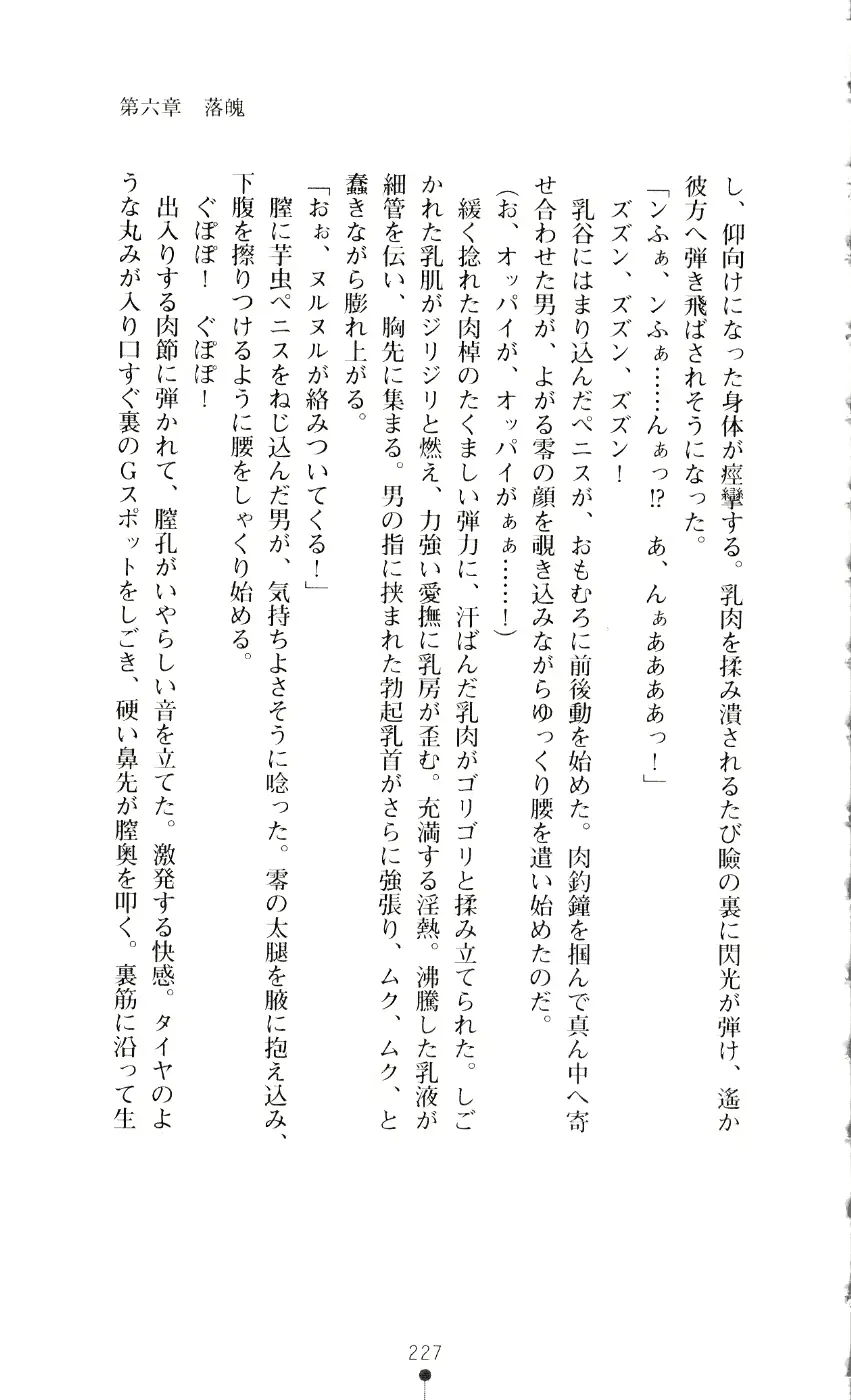 第六章　落魄
し、仰向けになった身体が痙攣する。乳肉を揉み潰されるたび瞼の裏に閃光が弾け、遙か
彼方へ弾き飛ばされそうになった。
「ンふぁ、ンふぁ……んぁっ!?　あ、んぁああああっ！」
ズズン、ズズン、ズズン！
乳谷にはまり込んだペニスが、おもむろに前後動を始めた。肉釣鐘を掴んで真ん中へ寄
せ合わせた男が、よがる零の顔を覗き込みながらゆっくり腰を遣い始めたのだ。
（お、オッパイが、オッパイがぁぁ……！）
緩く捻れた肉棹のたくましい弾力に、汗ばんだ乳肉がゴリゴリと揉み立てられた。しご
かれた乳肌がジリジリと燃え、力強い愛撫に乳房が歪む。充満する淫熱。沸騰した乳液が
細管を伝い、胸先に集まる。男の指に挟まれた勃起乳首がさらに強張り、ムク、ムク、と
蠢きながら膨れ上がる。
「おぉ、ヌルヌルが絡みついてくる！」
膣に芋虫ペニスをねじ込んだ男が、気持ちよさそうに唸った。零の太腿を腋に抱え込み、
下腹を擦りつけるように腰をしゃくり始める。
ぐぽぽ！　ぐぽぽ！
出入りする肉節に弾かれて、膣孔がいやらしい音を立てた。激発する快感。タイヤのよ
うな丸みが入り口すぐ裏のＧスポットをしごき、硬い鼻先が膣奥を叩く。裏筋に沿って生
227